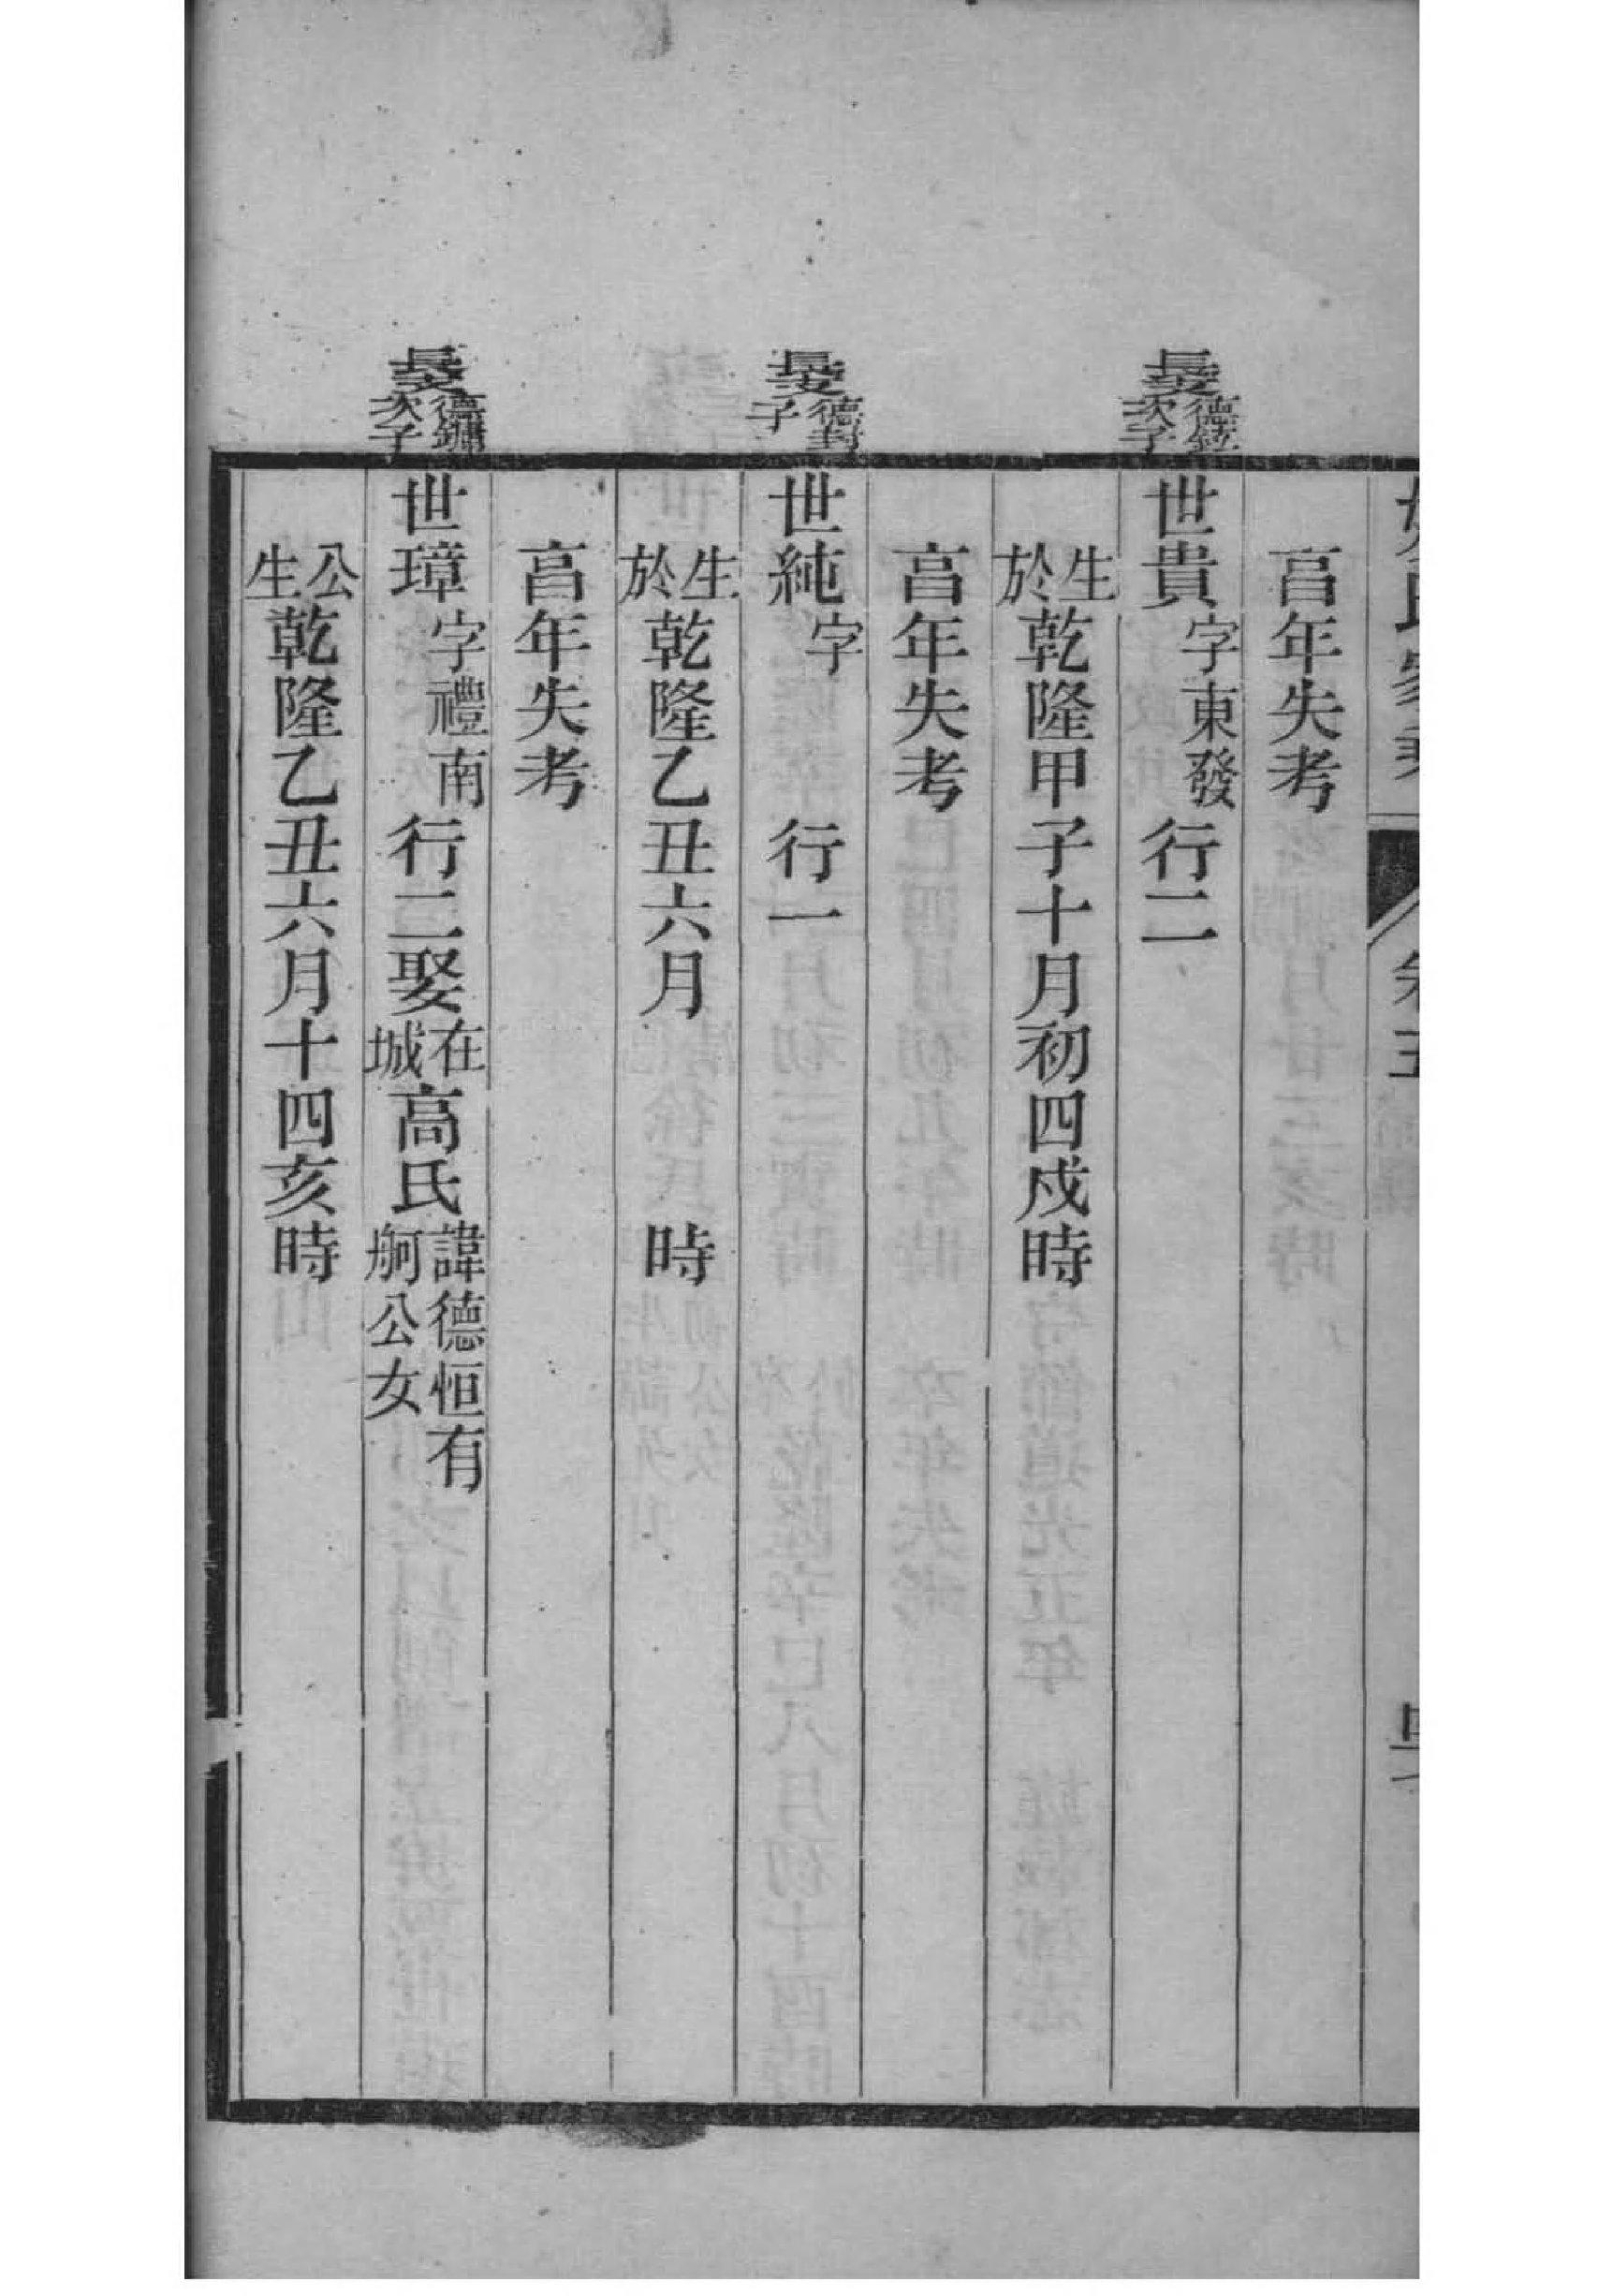 亯年失考
德
次子
世貴字東發行二
生於乾隆甲子十月初四戌時
亯年失考
德封子
世純字 行一
生於乾隆乙丑六月 時
亯年失考
德鏞次子
世璋字禮南行二娶在城高氏諱德恒有舸公女
公生乾隆乙丑六月十四亥時